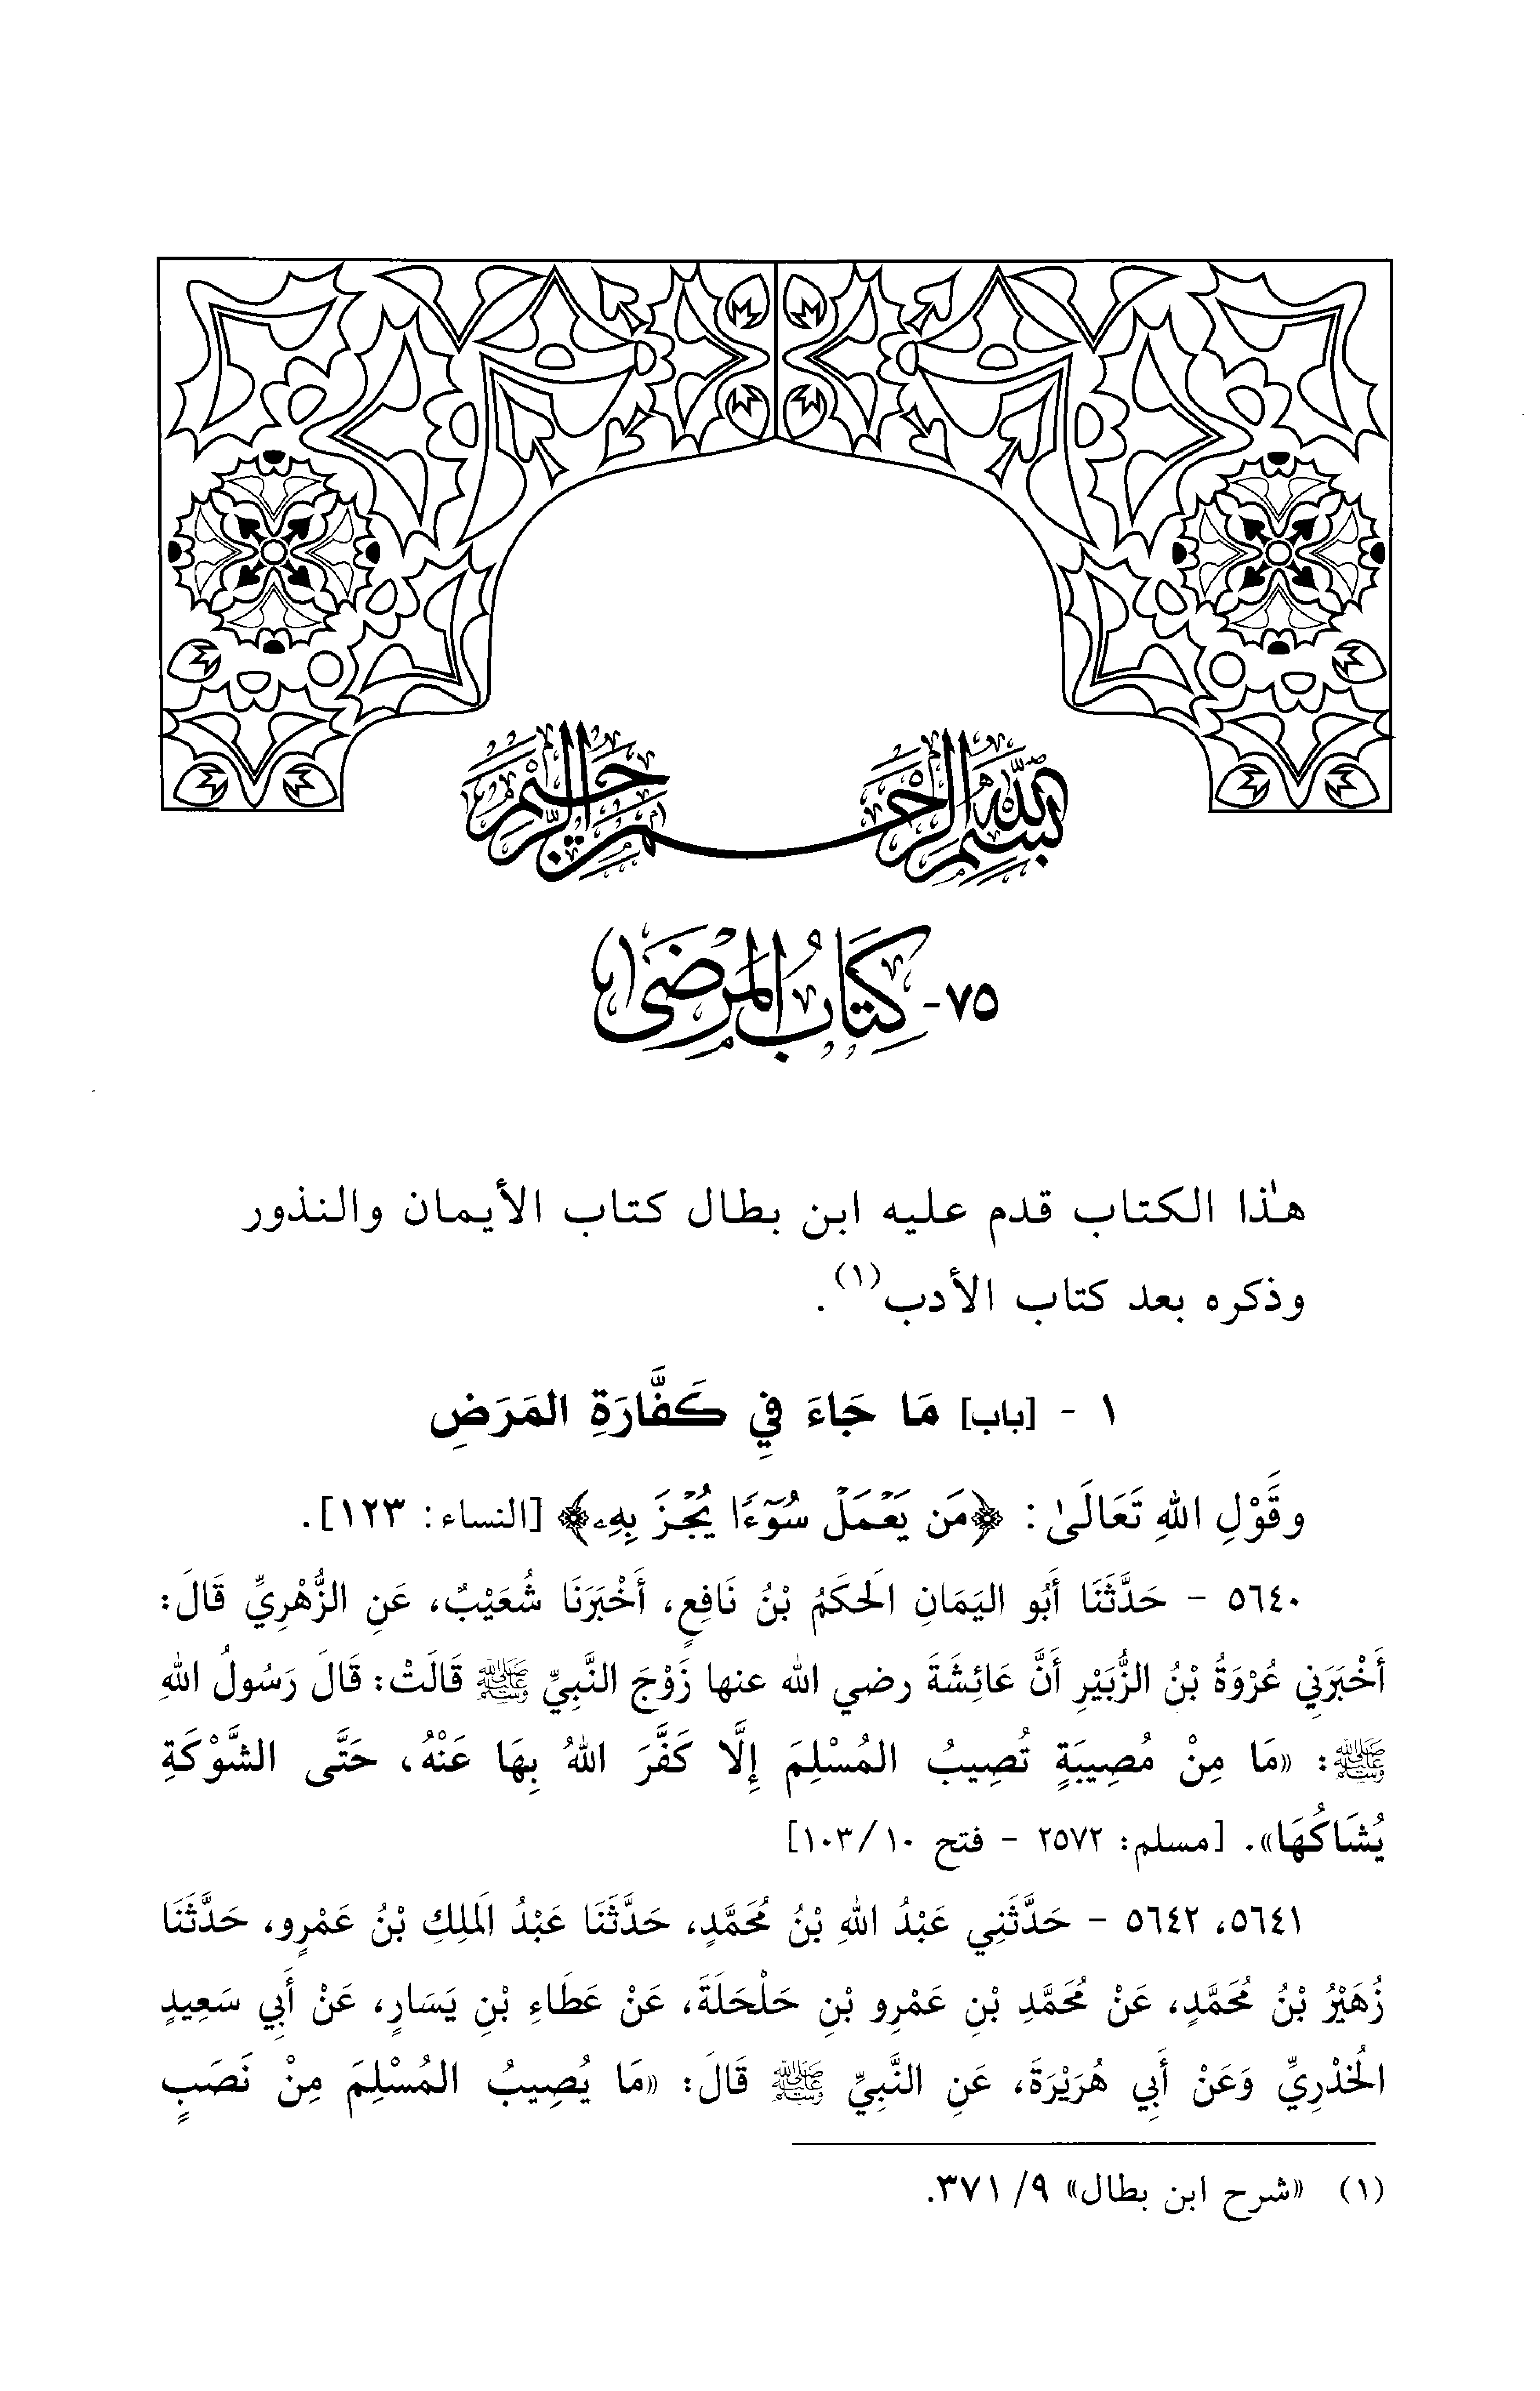 بسم الله الرحمن الرحيم
٧٥- كِتَابُ المَرْضَىٰ
هذا الكتاب قدم عليه ابن بطال كتاب الأيمان والنذور
وذكره بعد كتاب الأدب(١).
١ - [باب] مَا جَاءَ فِي كَفَّارَةِ المَرَضِ
وقَوْلِ اللهِ تَعَالَىٰ: ﴿مَن يَعْمَلْ سُوٓءًا يُجْزَ بِهِۦ﴾ [النساء: ١٢٣].
٥٦٤٠ - حَدَّثَنَا أَبُو اليَمَانِ الَحكَمُ بْنُ نَافِعٍ، أَخْبَرَنَا شُعَيْبٌ، عَنِ الزُّهْرِيِّ قَالَ:
أَخْبَرَنِي عُرْوَةُ بْنُ الزُّبَيْرِ أَنَّ عَائِشَةَ رضي الله عنها زَوْجَ النَّبِيِّ ﷺ قَالَتْ: قَالَ رَسُولُ اللهِ
ﷺ: «مَا مِنْ مُصِيبَةٍ تُصِيبُ المُسْلِمَ إِلَّا كَفَّرَ اللهُ بِهَا عَنْهُ، حَتَّى الشَّوْكَةِ
يُشَاكُهَا». [مسلم: ٢٥٧٢ - فتح ١٠/ ١٠٣]
٥٦٤١، ٥٦٤٢ - حَدَّثَنِي عَبْدُ اللهِ بْنُ مُحَمَّدٍ، حَدَّثَنَا عَبْدُ الَملِكِ بْنُ عَمْرٍو، حَدَّثَنَا
زُهَيْرُ بْنُ مُحَمَّدٍ، عَنْ مُحَمَّدِ بْنِ عَمْرِو بْنِ حَلْحَلَةَ، عَنْ عَطَاءِ بْنِ يَسَارٍ، عَنْ أَبِي سَعِيدٍ
الُخدْرِيِّ وَعَنْ أَبِي هُرَيْرَةَ، عَنِ النَّبِيِّ ﷺ قَالَ: «مَا يُصِيبُ المُسْلِمَ مِنْ نَصَبٍ
(١) «شرح ابن بطال» ٩/ ٣٧١.